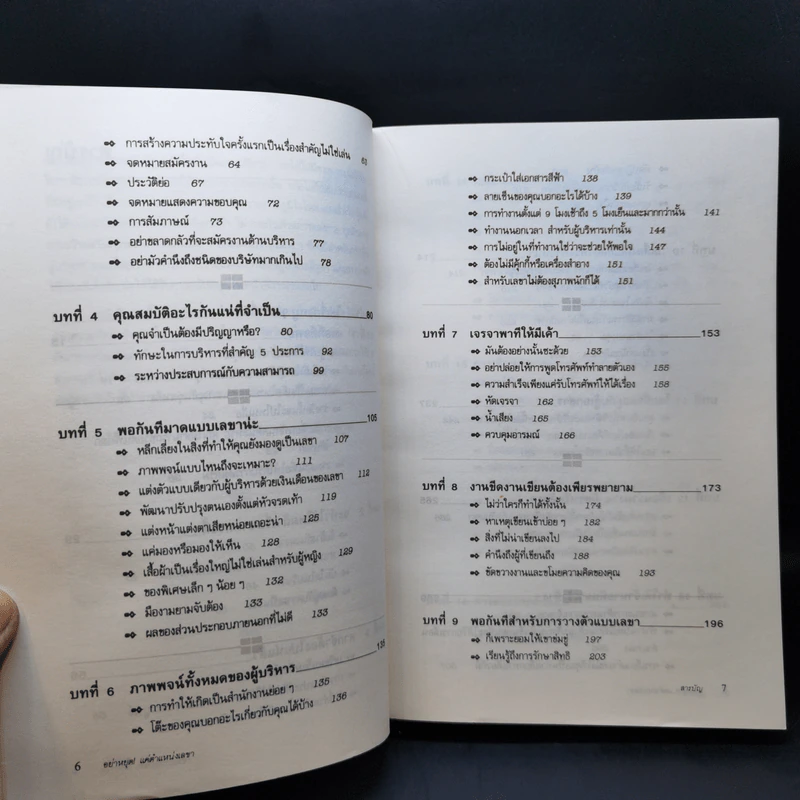 ➪ การสร้างความประทับใจครั้งแรกเป็นเรื่องสำคัญไม่ใช่เล่น 63
➪ จดหมายสมัครงาน 64
➪ ประวัติย่อ 67
➪ จดหมายแสดงความขอบคุณ 72
➪ การสัมภาษณ์ 73
➪ อย่าขลาดกลัวที่จะสมัครงานด้านบริหาร 77
➪ อย่ามัวคำนึงถึงชนิดของบริษัทมากเกินไป 78
บทที่ 4 คุณสมบัติอะไรกันแน่ที่จำเป็น 80
➪ คุณจำเป็นต้องมีปริญญาหรือ? 80
➪ ทักษะในการบริหารที่สำคัญ 5 ประการ 92
➪ ระหว่างประสบการณ์กับความสามารถ 99
บทที่ 5 พอกันทีมาดแบบเลขาน่ะ 105
➪ หลีกเลี่ยงในสิ่งที่ทำให้คุณยังมองดูเป็นเลขา 107
➪ ภาพพจน์แบบไหนถึงจะเหมาะ? 111
➪ แต่งตัวแบบเดียวกับผู้บริหารด้วยเงินเดือนของเลขา 112
➪ พัฒนาปรับปรุงตนเองตั้งแต่หัวจรดเท้า 119
➪ แต่งหน้าแต่งตาเสียหน่อยเถอะน่า 125
➪ แค่มองหรือมองให้เห็น 128
➪ เสื้อผ้าเป็นเรื่องใหญ่ไม่ใช่เล่นสำหรับผู้หญิง 129
➪ ของพิเศษเล็ก ๆ น้อย ๆ 132
➪ มืองามยามจับต้อง 133
➪ ผลของส่วนประกอบภายนอกที่ไม่ดี 133
บทที่ 6 ภาพพจน์ทั้งหมดของผู้บริหาร 135
➪ การทำให้เกิดเป็นสำนักงานย่อย ๆ 135
➪ โต๊ะของคุณบอกอะไรเกี่ยวกับคุณได้บ้าง 136
6 อย่าหยุด! แค่ตำแหน่งเลขา
➪ กระเป๋าใส่เอกสารสีฟ้า 138
➪ ลายเซ็นของคุณบอกอะไรได้บ้าง 139
➪ การทำงานตั้งแต่ 9 โมงเช้าถึง 5 โมงเย็นและมากกว่านั้น 141
➪ ทำงานนอกเวลา สำหรับผู้บริหารเท่านั้น 144
➪ การไม่อยู่ในที่ทำงานใช่ว่าจะช่วยให้พอใจ 147
➪ ต้องไม่มีคุ้กกี้หรือเครื่องสำอาง 151
➪ สำหรับเลขาไม่ต้องสุภาพนักก็ได้ 151
บทที่ 7 เจรจาพาทีให้มีเค้า 153
➪ มันต้องอย่างนั้นซะด้วย 153
➪ อย่าปล่อยให้การพูดโทรศัพท์ทำลายตัวเอง 155
➪ ความสำเร็จเพียงแค่รับโทรศัพท์ให้ได้เรื่อง 158
➪ หัดเจรจา 162
➪ น้ำเสียง 165
➪ ควบคุมอารมณ์ 166
บทที่ 8 งานขีดงานเขียนต้องเพียรพยายาม 173
➪ ไม่ว่าใครก็ทำได้ทั้งนั้น 174
➪ หาเหตุเขียนเข้าบ่อย ๆ 182
➪ สิ่งที่ไม่น่าเขียนลงไป 184
➪ คำนึงถึงผู้ที่เขียนถึง 188
➪ ขัดขวางงานและขโมยความคิดของคุณ 193
บทที่ 9 พอกันทีสำหรับการวางตัวแบบเลขา 196
➪ ก็เพราะยอมให้เขาข่มขู่ 197
➪ เรียนรู้ถึงการรักษาสิทธิ 203
สารบัญ 7